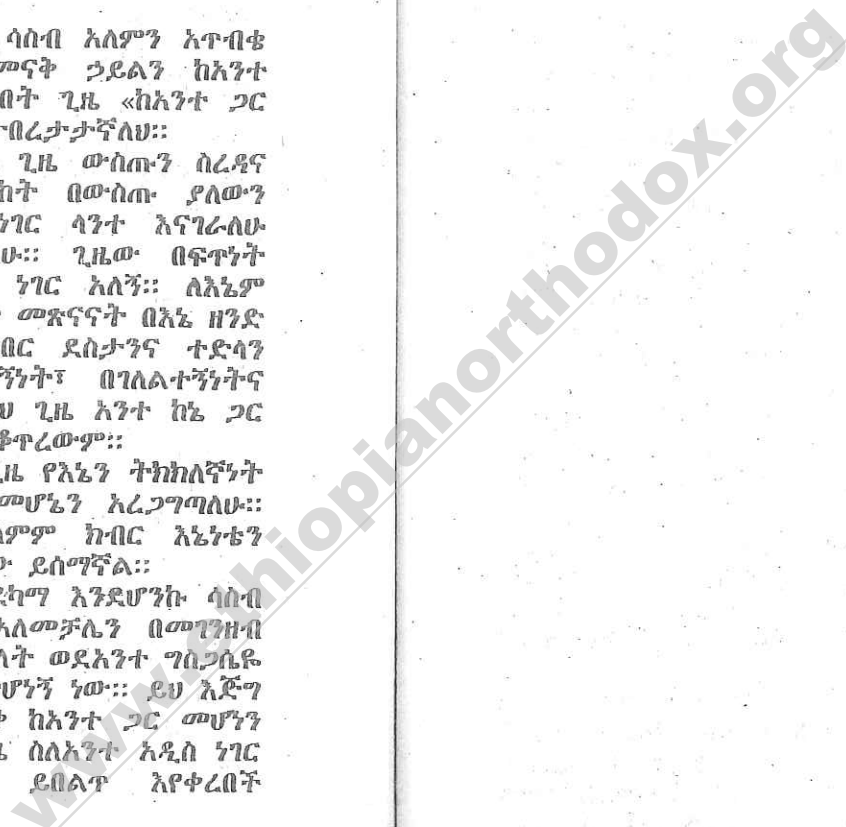 ሳስብ አለምን አጥብቄ
መናቅ ኃይልን ከአንተ
በት ጊዜ «ከአንተ ጋር
ተበረታታኛለህ።
ጊዜ ውስጡን ስረዳና
ከት በውስጡ ያለውን
ነገር ላንተ እናገራለሁ
ሁ። ጊዜው በፍጥነት
ነገር አለኝ። ለእኔም
መጽናናት በእኔ ዘንድ
በር ደስታንና ተድላን
ኝነት፣ በገለልተኝነትና
ህ ጊዜ አንተ ከኔ ጋር
ቆጥረውም።
ጊዜ የእኔን ትክክለኛነት
መሆኔን አረጋግጣለሁ።
ለምም ክብር እኔነቴን
ይሰማኛል።
ደካማ እንደሆንኩ ሳስብ
አለመቻሌን በመገንዘብ
ላት ወደአንተ ግስጋሴዬ
ሆነኝ ነው። ይህ እጅግ
ከአንተ ጋር መሆንን
ስለአንተ አዲስ ነገር
ይበልጥ እየቀረበች
www.ethiopianorthodox.org